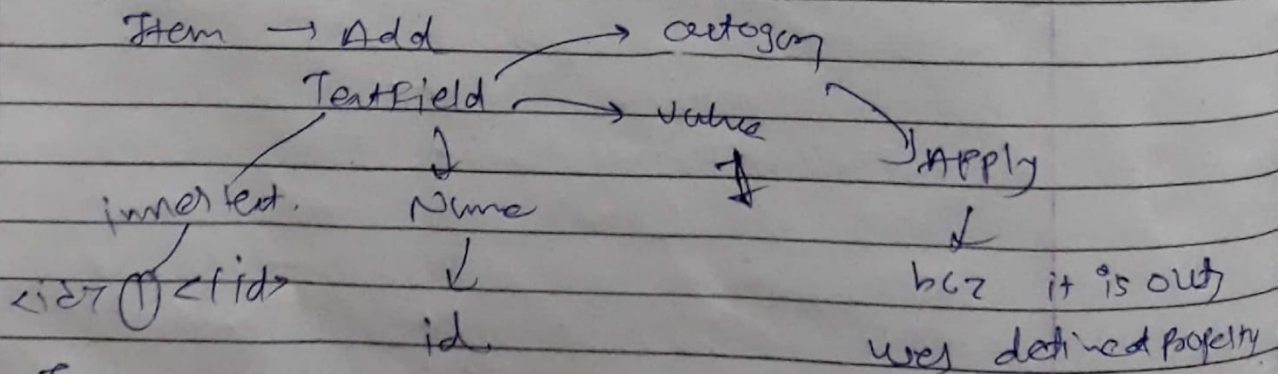 Item → Add
TextField → → value
Apply
innertext. Name
<id> 1 </id> bcz it is our
id. user defined property